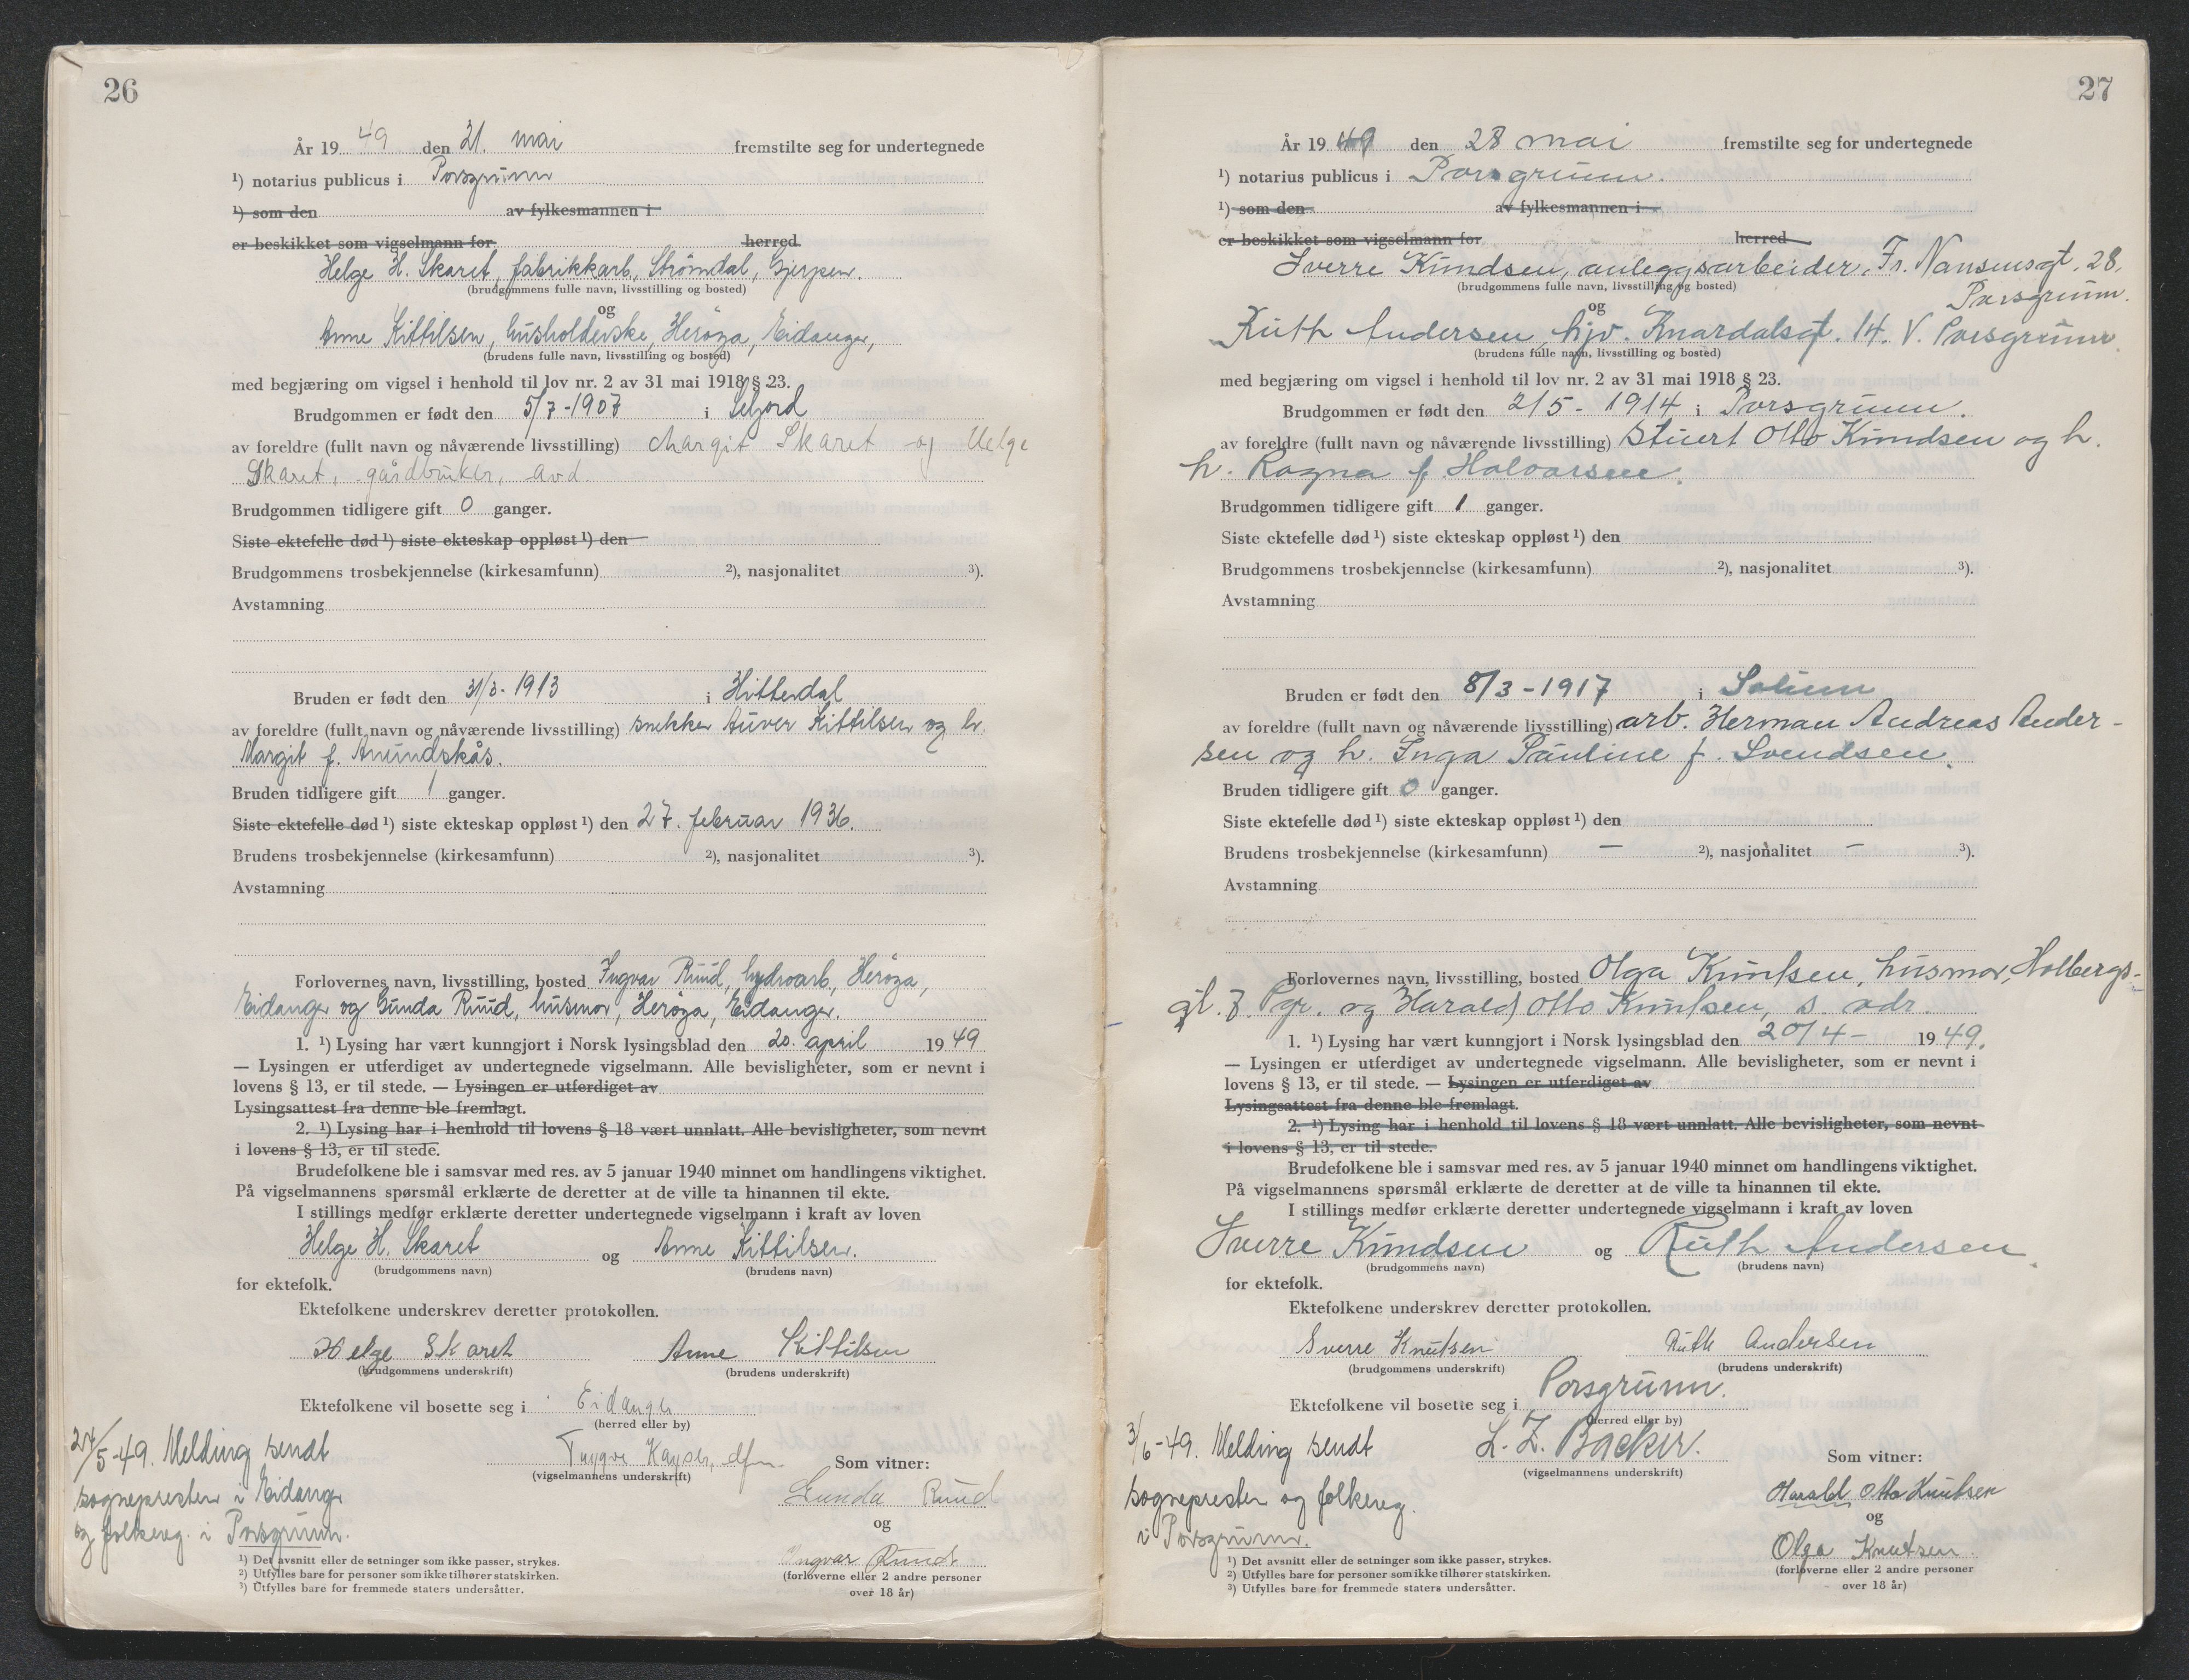 26
År 19 49 den 21. mai fremstilte seg for undertegnede
¹) notarius publicus i Porsgrunn
¹) som den av fylkesmannen i
er beskikket som vigselmann for herred.
Helge H. Skaret, fabrikkarb, Strömdal, Gjerpen.
(brudgommens fulle navn, livsstilling og bosted)
og
Anne Kittilsen, husholderske, Heröya, Eidanger,
(brudens fulle navn, livsstilling og bosted)
med begjæring om vigsel i henhold til lov nr. 2 av 31 mai 1918 § 23.
Brudgommen er født den 5/7-1907 i Seljord
av foreldre (fullt navn og nåværende livsstilling) Margit Skaret og Helge
Skaret, gårdbruker, avd.
Brudgommen tidligere gift 0 ganger.
Siste ektefelle død ¹) siste ekteskap oppløst ¹) den
Brudgommens trosbekjennelse (kirkesamfunn) ²), nasjonalitet ³).
Avstamning
Bruden er født den 31/3-1913 i Hitterdal
av foreldre (fullt navn og nåværende livsstilling) snekker Auver Kittilsen og h.
Margit f. Anundskås.
Bruden tidligere gift 1 ganger.
Siste ektefelle død ¹) siste ekteskap oppløst ¹) den 27. februar 1936.
Brudens trosbekjennelse (kirkesamfunn) ²), nasjonalitet ³).
Avstamning
Forlovernes navn, livsstilling, bosted Ingvar Ruud, hydroarb, Heröya,
Eidanger og Gunda Ruud, husmor, Heröya, Eidanger.
1. ¹) Lysing har vært kunngjort i Norsk lysingsblad den 20. april 19 49
— Lysingen er utferdiget av undertegnede vigselmann. Alle bevisligheter, som er nevnt i
lovens § 13, er til stede. — Lysingen er utferdiget av
Lysingsattest fra denne ble fremlagt.
2. ¹) Lysing har i henhold til lovens § 18 vært unnlatt. Alle bevisligheter, som nevnt
i lovens § 13, er til stede.
Brudefolkene ble i samsvar med res. av 5 januar 1940 minnet om handlingens viktighet.
På vigselmannens spørsmål erklærte de deretter at de ville ta hinannen til ekte.
I stillings medfør erklærte deretter undertegnede vigselmann i kraft av loven
Helge H. Skaret og Anne Kittilsen.
(brudgommens navn) (brudens navn)
for ektefolk.
Ektefolkene underskrev deretter protokollen.
Helge Skaret Anne Kittilsen
(brudgommens underskrift) (brudens underskrift)
Ektefolkene vil bosette seg i Eidanger
(herred eller by)
24/5-49. Melding sendt
sogneprester i Eidanger
og folkereg. i Porsgrunn.
Trygve Kayser, dfm.
(vigselmannens underskrift)
Som vitner:
Gunda Ruud
og
Ingvar Ruud
(forloverne eller 2 andre personer
over 18 år)
¹) Det avsnitt eller de setninger som ikke passer, strykes.
²) Utfylles bare for personer som ikke tilhører statskirken.
³) Utfylles bare for fremmede staters undersåtter.
27
År 19 49 den 28 mai fremstilte seg for undertegnede
¹) notarius publicus i Porsgrunn.
¹) som den av fylkesmannen i
er beskikket som vigselmann for herred
Sverre Knudsen, anleggsarbeider, Fr. Nansensgt. 28,
Porsgrunn.
(brudgommens fulle navn, livsstilling og bosted)
og
Ruth Andersen, hjv. Knardalsgt. 14. V. Porsgrunn.
(brudens fulle navn, livsstilling og bosted)
med begjæring om vigsel i henhold til lov nr. 2 av 31 mai 1918 § 23.
Brudgommen er født den 2/5-1914 i Porsgrunn.
av foreldre (fullt navn og nåværende livsstilling) Stuert Otto Knudsen og h.
h. Ragna f. Halvorsen.
Brudgommen tidligere gift 1 ganger.
Siste ektefelle død ¹) siste ekteskap oppløst ¹) den
Brudgommens trosbekjennelse (kirkesamfunn) ²), nasjonalitet ³).
Avstamning
Bruden er født den 8/3-1917 i Solum
av foreldre (fullt navn og nåværende livsstilling) arb. Herman Andreas Ander-
sen og h. Inga Pauline f. Svendsen.
Bruden tidligere gift 0 ganger.
Siste ektefelle død ¹) siste ekteskap oppløst ¹) den
Brudens trosbekjennelse (kirkesamfunn) — ²), nasjonalitet — ³).
Avstamning
Forlovernes navn, livsstilling, bosted Olga Knutsen, husmor, Holbergs-
gt. 7. Pgr. og Harald Otto Knutsen, s. adr.
1. ¹) Lysing har vært kunngjort i Norsk lysingsblad den 20/4- 19 49.
— Lysingen er utferdiget av undertegnede vigselmann. Alle bevisligheter, som er nevnt i
lovens § 13, er til stede. — Lysingen er utferdiget av
Lysingsattest fra denne ble fremlagt.
2. ¹) Lysing har i henhold til lovens § 18 vært unnlatt. Alle bevisligheter, som nevnt
i lovens § 13, er til stede.
Brudefolkene ble i samsvar med res. av 5 januar 1940 minnet om handlingens viktighet.
På vigselmannens spørsmål erklærte de deretter at de ville ta hinannen til ekte.
I stillings medfør erklærte deretter undertegnede vigselmann i kraft av loven
Sverre Knudsen og Ruth Andersen.
(brudgommens navn) (brudens navn)
for ektefolk.
Ektefolkene underskrev deretter protokollen.
Sverre Knutsen Ruth Andersen
(brudgommens underskrift) (brudens underskrift)
Ektefolkene vil bosette seg i Porsgrunn.
(herred eller by)
3/6-49. Melding sendt
sogneprester og folkereg.
i Porsgrunn.
L. Z. Backer.
(vigselmannens underskrift)
Som vitner:
Harald Otto Knutsen
og
Olga Knutsen.
(forloverne eller 2 andre personer
over 18 år)
¹) Det avsnitt eller de setninger som ikke passer, strykes.
²) Utfylles bare for personer som ikke tilhører statskirken.
³) Utfylles bare for fremmede staters undersåtter.